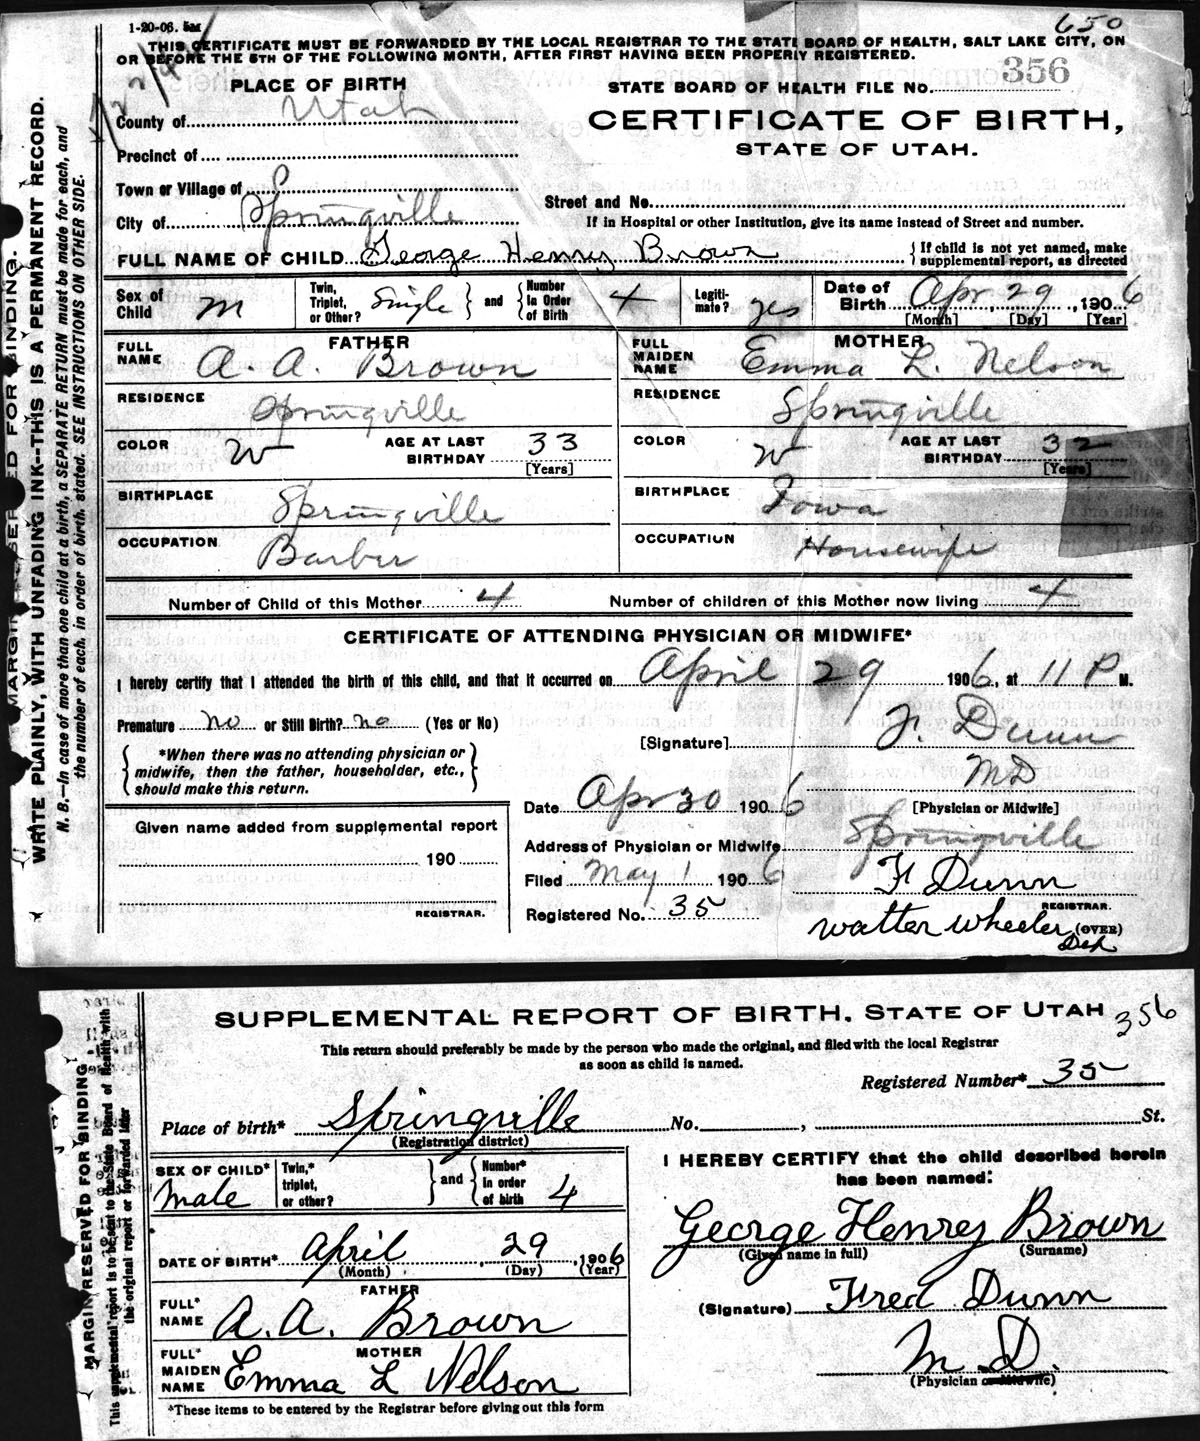 1-20-06.
650
THIS CERTIFICATE MUST BE FORWARDED BY THE LOCAL REGISTRAR TO THE STATE BOARD OF HEALTH, SALT LAKE CITY, ON
OR BEFORE THE 5TH OF THE FOLLOWING MONTH, AFTER FIRST HAVING BEEN PROPERLY REGISTERED.
PLACE OF BIRTH
STATE BOARD OF HEALTH FILE NO. 356
County of Utah
CERTIFICATE OF BIRTH,
STATE OF UTAH.
Precinct of
Town or Village of
City of Springville
Street and No.
If in Hospital or other Institution, give its name instead of Street and number.
FULL NAME OF CHILD George Henry Brown
{If child is not yet named, make
supplemental report, as directed
Sex of Child M
Twin, Triplet, or Other? Single } and { Number in Order of Birth 4
Legitimate? yes
Date of Birth Apr 29, 1906
[Month] [Day] [Year]
FATHER
FULL NAME A. A. Brown
MOTHER
FULL MAIDEN NAME Emma L. Nelson
RESIDENCE Springville
RESIDENCE Springville
COLOR W AGE AT LAST BIRTHDAY 33 [Years]
COLOR W AGE AT LAST BIRTHDAY 32 [Years]
BIRTHPLACE Springville
BIRTHPLACE Iowa
OCCUPATION Barber
OCCUPATION Housewife
Number of Child of this Mother 4 Number of children of this Mother now living 4
CERTIFICATE OF ATTENDING PHYSICIAN OR MIDWIFE*
I hereby certify that I attended the birth of this child, and that it occurred on April 29 1906, at 11 P M.
Premature no or Still Birth? no (Yes or No)
[Signature] F. Dunn
MD
[Physician or Midwife]
{ *When there was no attending physician or
midwife, then the father, householder, etc.,
should make this return. }
Date Apr 30 1906
Given name added from supplemental report
190
REGISTRAR.
Address of Physician or Midwife Springville
Filed May 1 1906
F Dunn
REGISTRAR.
Registered No. 35
Walter Wheeler (OVER)
Dep
MARGIN RESERVED FOR BINDING.
WRITE PLAINLY, WITH UNFADING INK--THIS IS A PERMANENT RECORD.
N. B.—In case of more than one child at a birth, a SEPARATE RETURN must be made for each, and
the number of each, in order of birth, stated. SEE INSTRUCTIONS ON OTHER SIDE.
SUPPLEMENTAL REPORT OF BIRTH, STATE OF UTAH 356
This return should preferably be made by the person who made the original, and filed with the local Registrar
as soon as child is named.
Registered Number* 35
Place of birth* Springville No. , St.
(Registration district)
SEX OF CHILD* Male
Twin,* triplet, or other? } and { Number* in order of birth 4
I HEREBY CERTIFY that the child described herein
has been named:
George Henry Brown
(Given name in full) (Surname)
DATE OF BIRTH* April, 29, 1906
(Month) (Day) (Year)
FATHER
FULL* NAME A. A. Brown
(Signature) Fred Dunn
M. D.
(Physician or Midwife)
MOTHER
FULL* MAIDEN NAME Emma L Nelson
*These items to be entered by the Registrar before giving out this form
MARGIN RESERVED FOR BINDING
This supplemental report is to be sent to the State Board of Health with
the original report or forwarded later